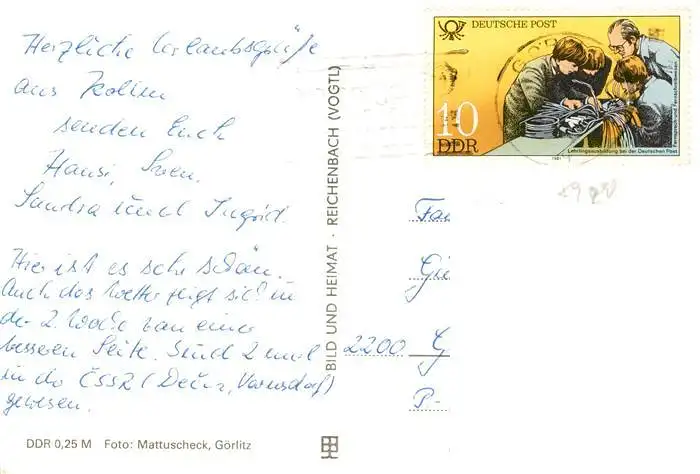 Herzliche Urlaubsgrüße
aus
senden Euch
Hansi, Sven,
Sandra und Ingrid.
Hier ist es sehr schön.
Auch das Wetter zeigt sich in
der 2. Woche von einer
besseren Seite. Sind 2 mal
in der ČSSR (Dečin, Varnsdorf)
gewesen.
DDR 0,25 M Foto: Mattuscheck, Görlitz
BILD UND HEIMAT · REICHENBACH (VOGTL)
DEUTSCHE POST
10
DDR
Lehrlingsausbildung bei der Deutschen Post
Fernsprech- und Fernschreibwesen
1981
Fa
Gü
2200 G
P-